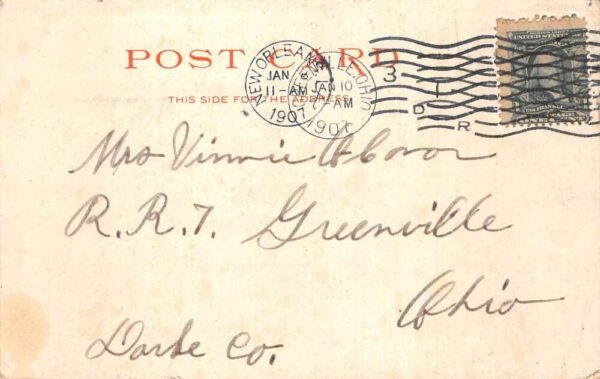 POST CARD
THIS SIDE FOR THE ADDRESS
NEW ORLEANS
JAN
11-AM
1907
GREENVILLE, OHIO
JAN 10
7-AM
1907
3
1
D
R
UNITED STATES
Mrs Vinnie
R.R.7. Greenville
Ohio
Darke Co.